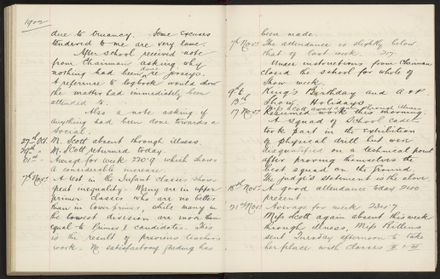 1902
due to truancy. Some excuses
tendered to me are very lame.
After school received note
from Chairman asking why
nothing had been done re
A reference to logbook would show
the matter had immediately been
attended to.
Also a note asking if
anything had been done towards a
Social.
27th Oct Mr. Scott absent through illness.
29th " Mr Scott returned today.
31st " Average for week 220.9 which shows
a considerable increase.
7th Nov: A test in the Infant classes shows
great inequality. Many are in upper
primer classes who are no better
than in lower primer, while many in
the lowest division are more than
equal to Primer 1 candidates. This
is the result of previous teachers
work. No satisfactory grading has
been made.
7th Nov: The attendance is slightly below
that of last week 217.
Under instructions from Chairman
closed the school for whole of
Show week.
9th King's Birthday and A & P
13th Show Holidays.
17 Nov: Miss Scott away again through illness
Resumed work this morning.
A squad of School Cadets
took part in the exhibition
of physical drill but were
disqualified on a technical point
after proving themselves the
best squad on the ground.
The Judge's statement is the above.
18th Nov: A good attendance today 240
present.
21st Nov: Average for week 230.7
Miss Scott again absent this week
through illness, Miss
sent Tuesday afternoon to take
her place with classes